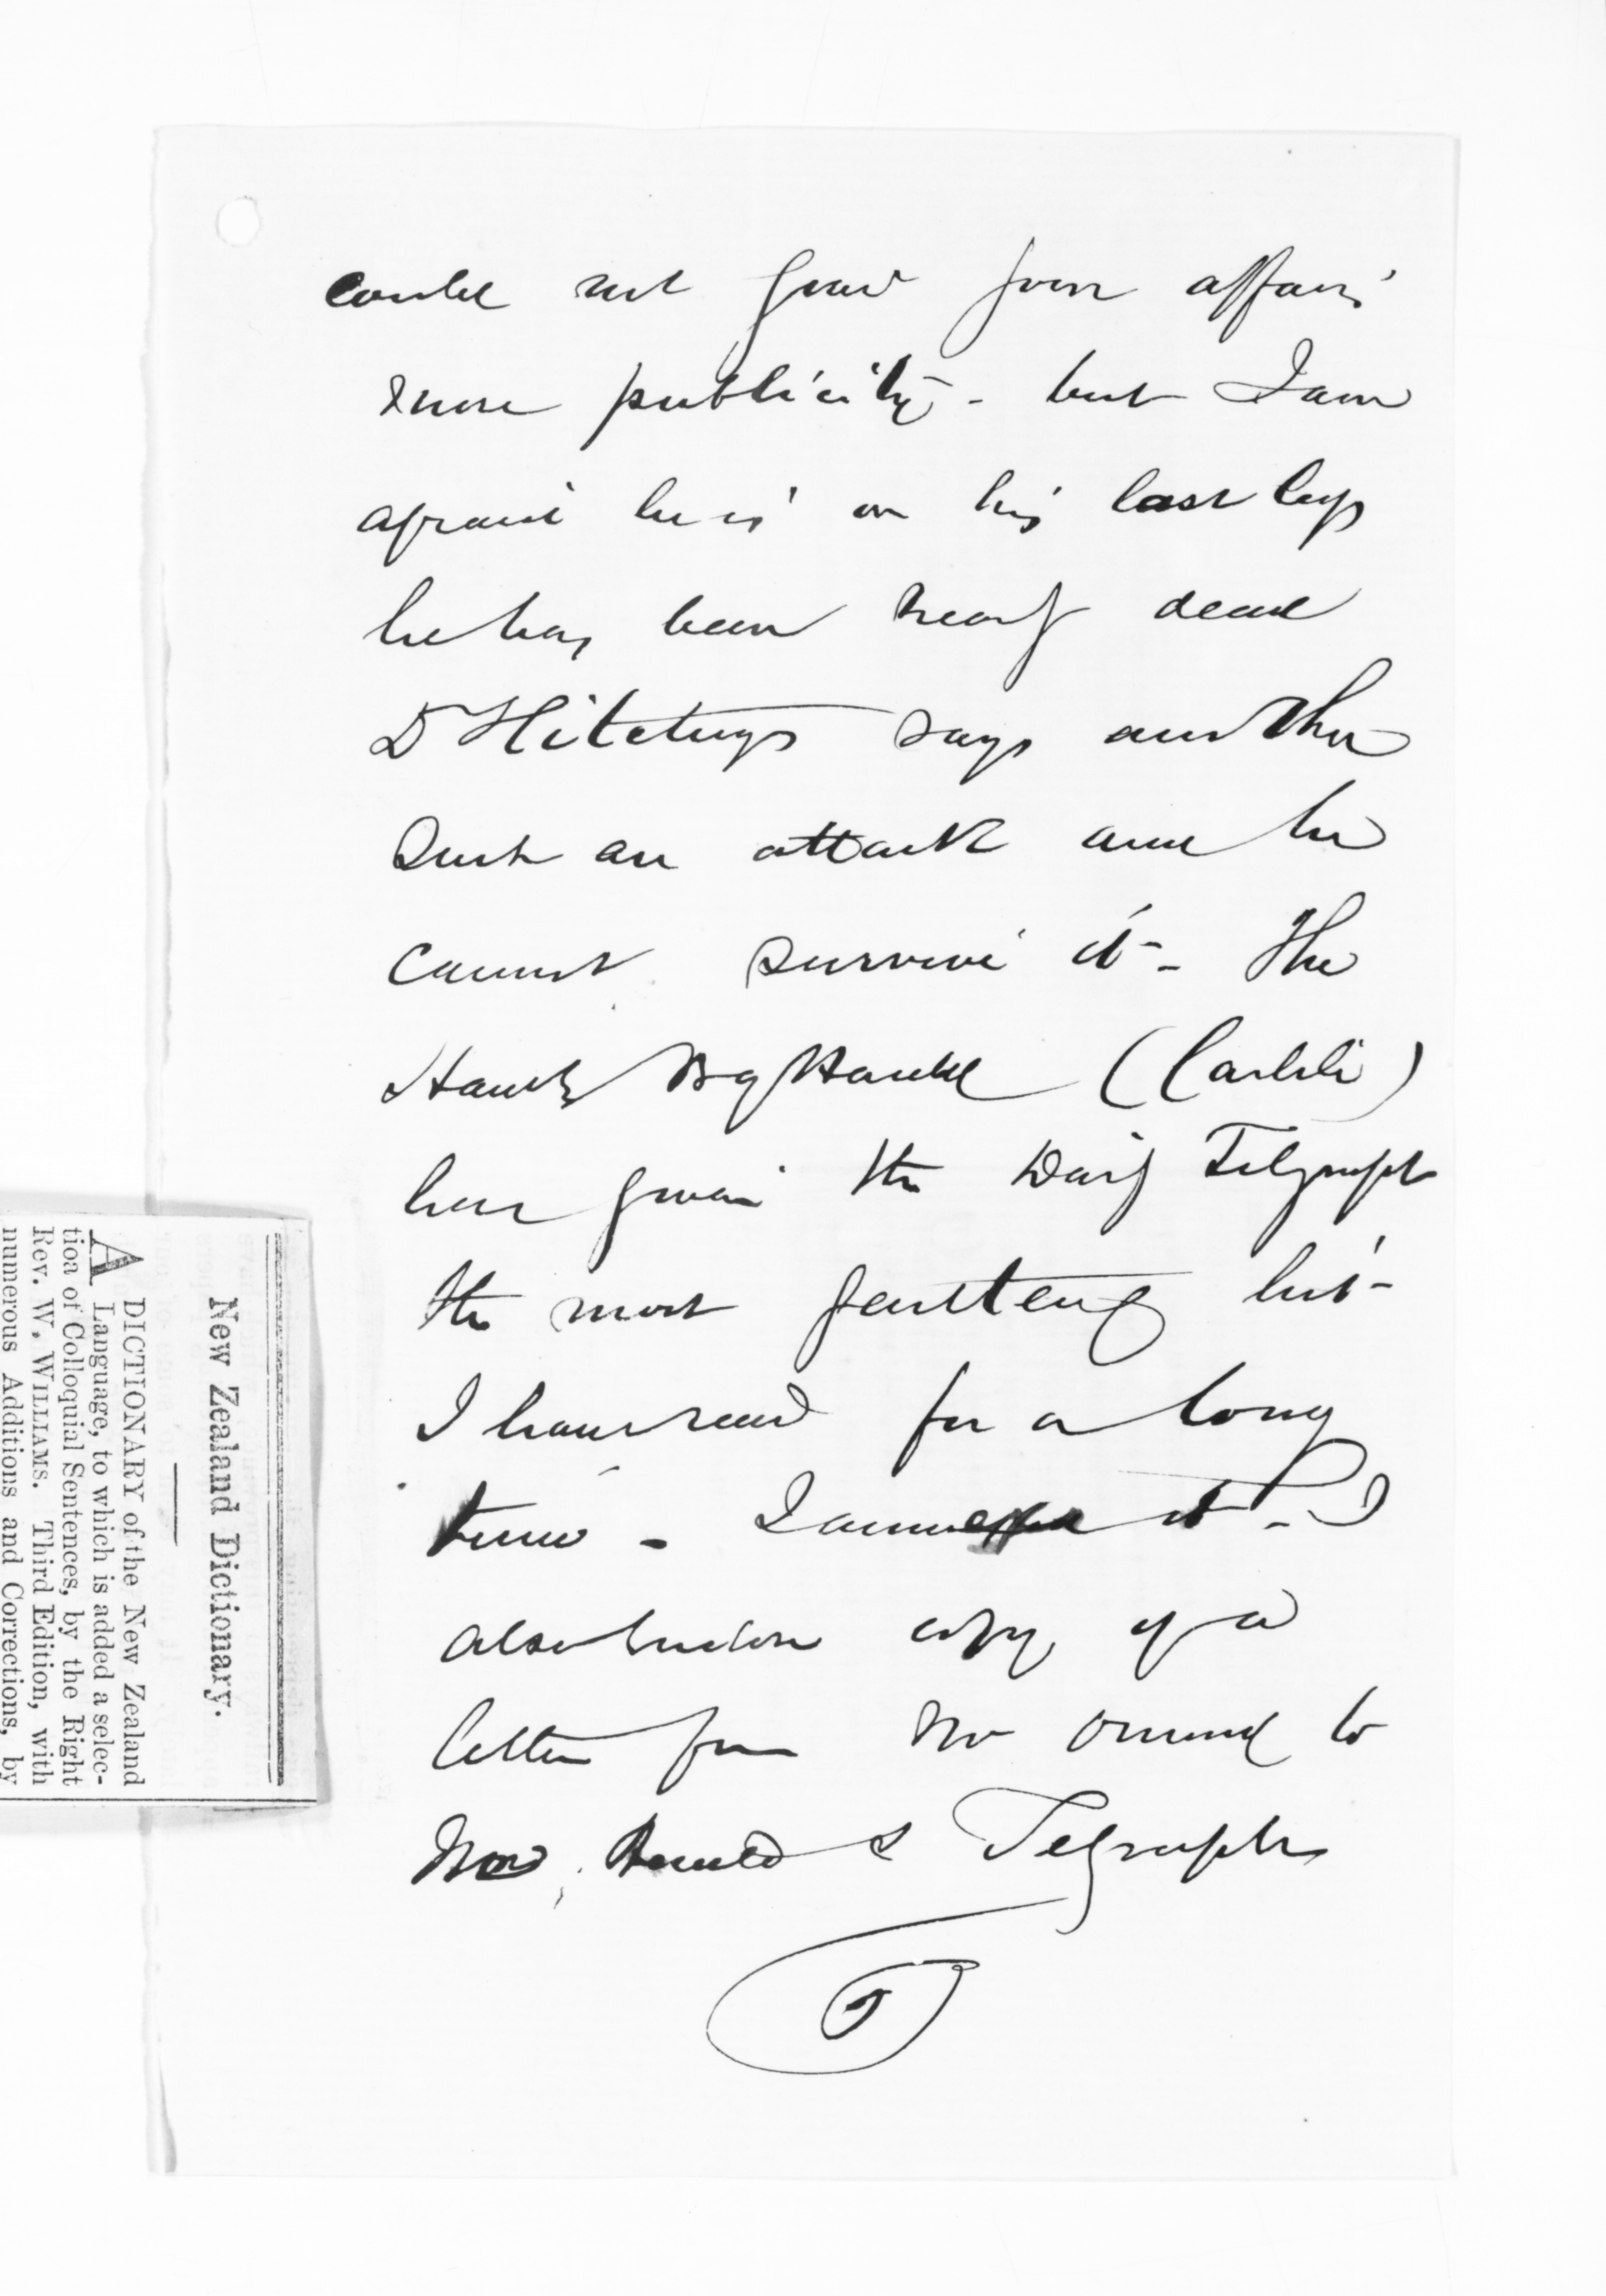 could not give your affair
more publicity - but I am
afraid he is on his last legs
he has been nearly dead
Dr Hitchings says another
such an attack and he
cannot survive it - The
Hawkes Bay Herald (Carlile)
has given the Daily Telegraph
the most hit -
I have read for a long
time - I it - I
also enclose copy of a
letter from Mr Ormond to
Herald & Telegraph
New Zealand Dictionary.
A DICTIONARY of the New Zealand
Language, to which is added a selec-
tion of Colloquial Sentences, by the Right
Rev. W. WILLIAMS. Third Edition, with
numerous Additions and Corrections, by